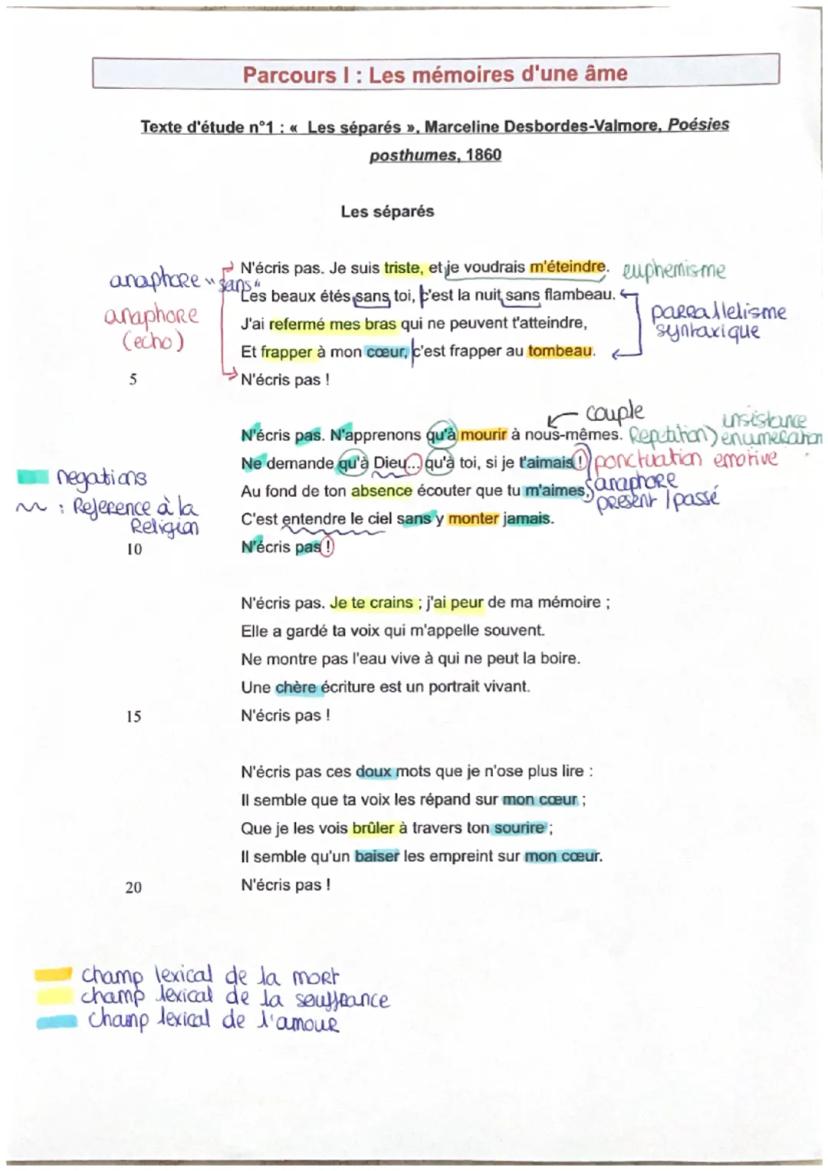 Parcours I : Les mémoires d'une âme
Texte d'étude n°1 : « Les séparés », Marceline Desbordes-Valmore, Poésies
posthumes, 1860
Les séparés
N'écris pas. Je suis triste, et je voudrais m'éteindre. euphemisme
anaphore "sans"
Les beaux étés sans toi, c'est la nuit sans flambeau.
anaphore
(echo)
J'ai refermé mes bras qui ne peuvent t'atteindre,
parrallelisme
syntaxique
Et frapper à mon cœur, c'est frapper au tombeau.
5 N'écris pas !
couple
N'écris pas. N'apprenons qu'à mourir à nous-mêmes. Reputation) insistance
enumeration
Ne demande qu'à Dieu... qu'à toi, si je t'aimais ! ponctuation emotive
negations
Au fond de ton absence écouter que tu m'aimes, anaphore
present / passé
~ : Reference à la
Religion
C'est entendre le ciel sans y monter jamais.
10 N'écris pas !
N'écris pas. Je te crains ; j'ai peur de ma mémoire ;
Elle a gardé ta voix qui m'appelle souvent.
Ne montre pas l'eau vive à qui ne peut la boire.
Une chère écriture est un portrait vivant.
15 N'écris pas !
N'écris pas ces doux mots que je n'ose plus lire :
Il semble que ta voix les répand sur mon cœur ;
Que je les vois brûler à travers ton sourire ;
Il semble qu'un baiser les empreint sur mon cœur.
20 N'écris pas !
champ lexical de la mort
champ lexical de la souffrance
champ lexical de l'amour